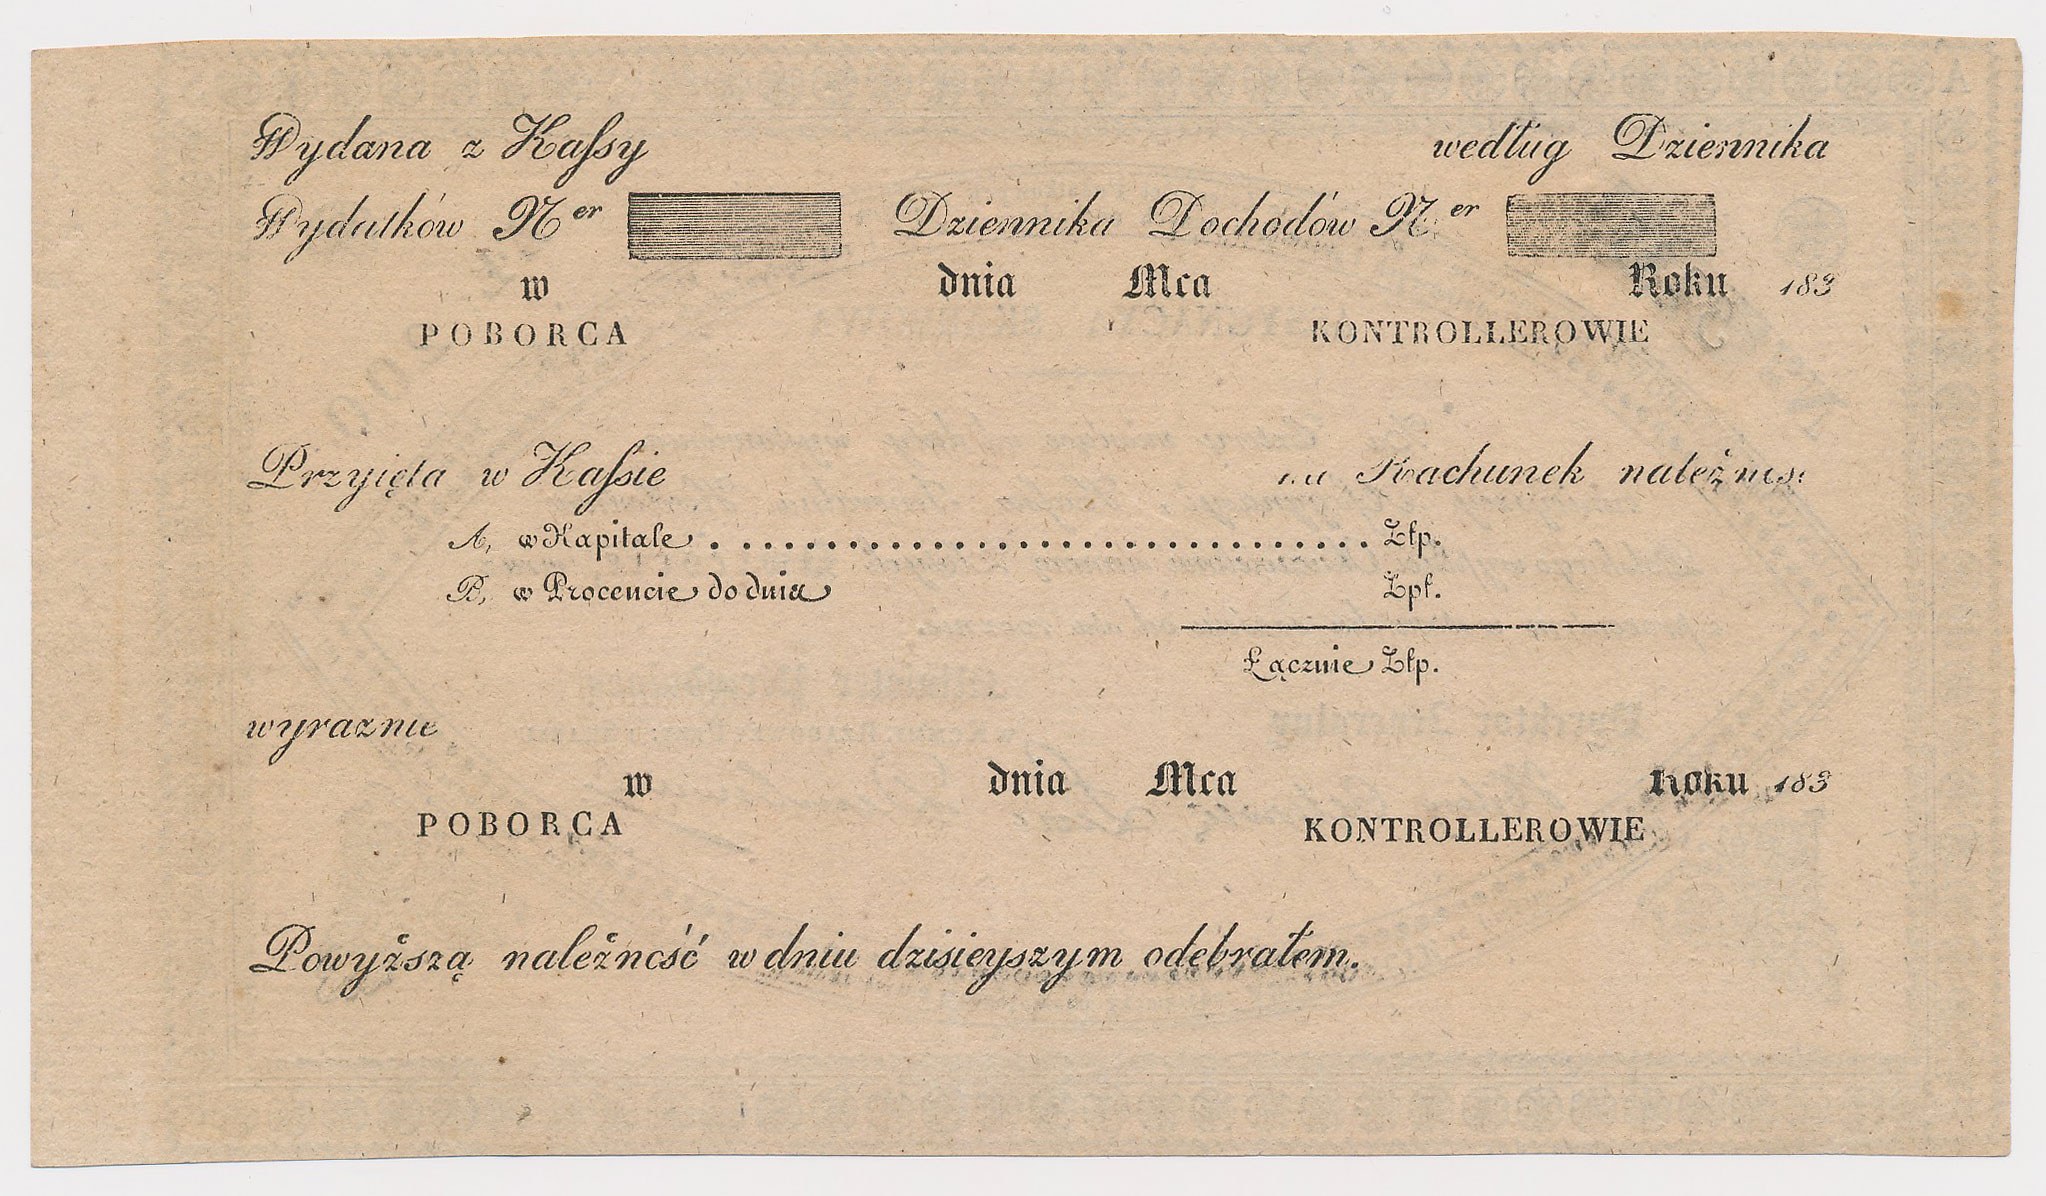 Wydana z Kaſsy według Dziennika
Wydatków Ner Dziennika Dochodów Ner
w dnia Mca Roku 183
POBORCA KONTROLLEROWIE
Przyięta w Kaſsie na Rachunek należnoś:
A, w Kapitale . . . . . . . . . . . . . . . . . . . . . . . . . . . . . . . . Złp.
B, w Procencie do dnia Zpł.
Łącznie Złp.
wyraznie
w dnia Mca Roku 183
POBORCA KONTROLLEROWIE
Powyższą należność w dniu dzisieyszym odebrałem.